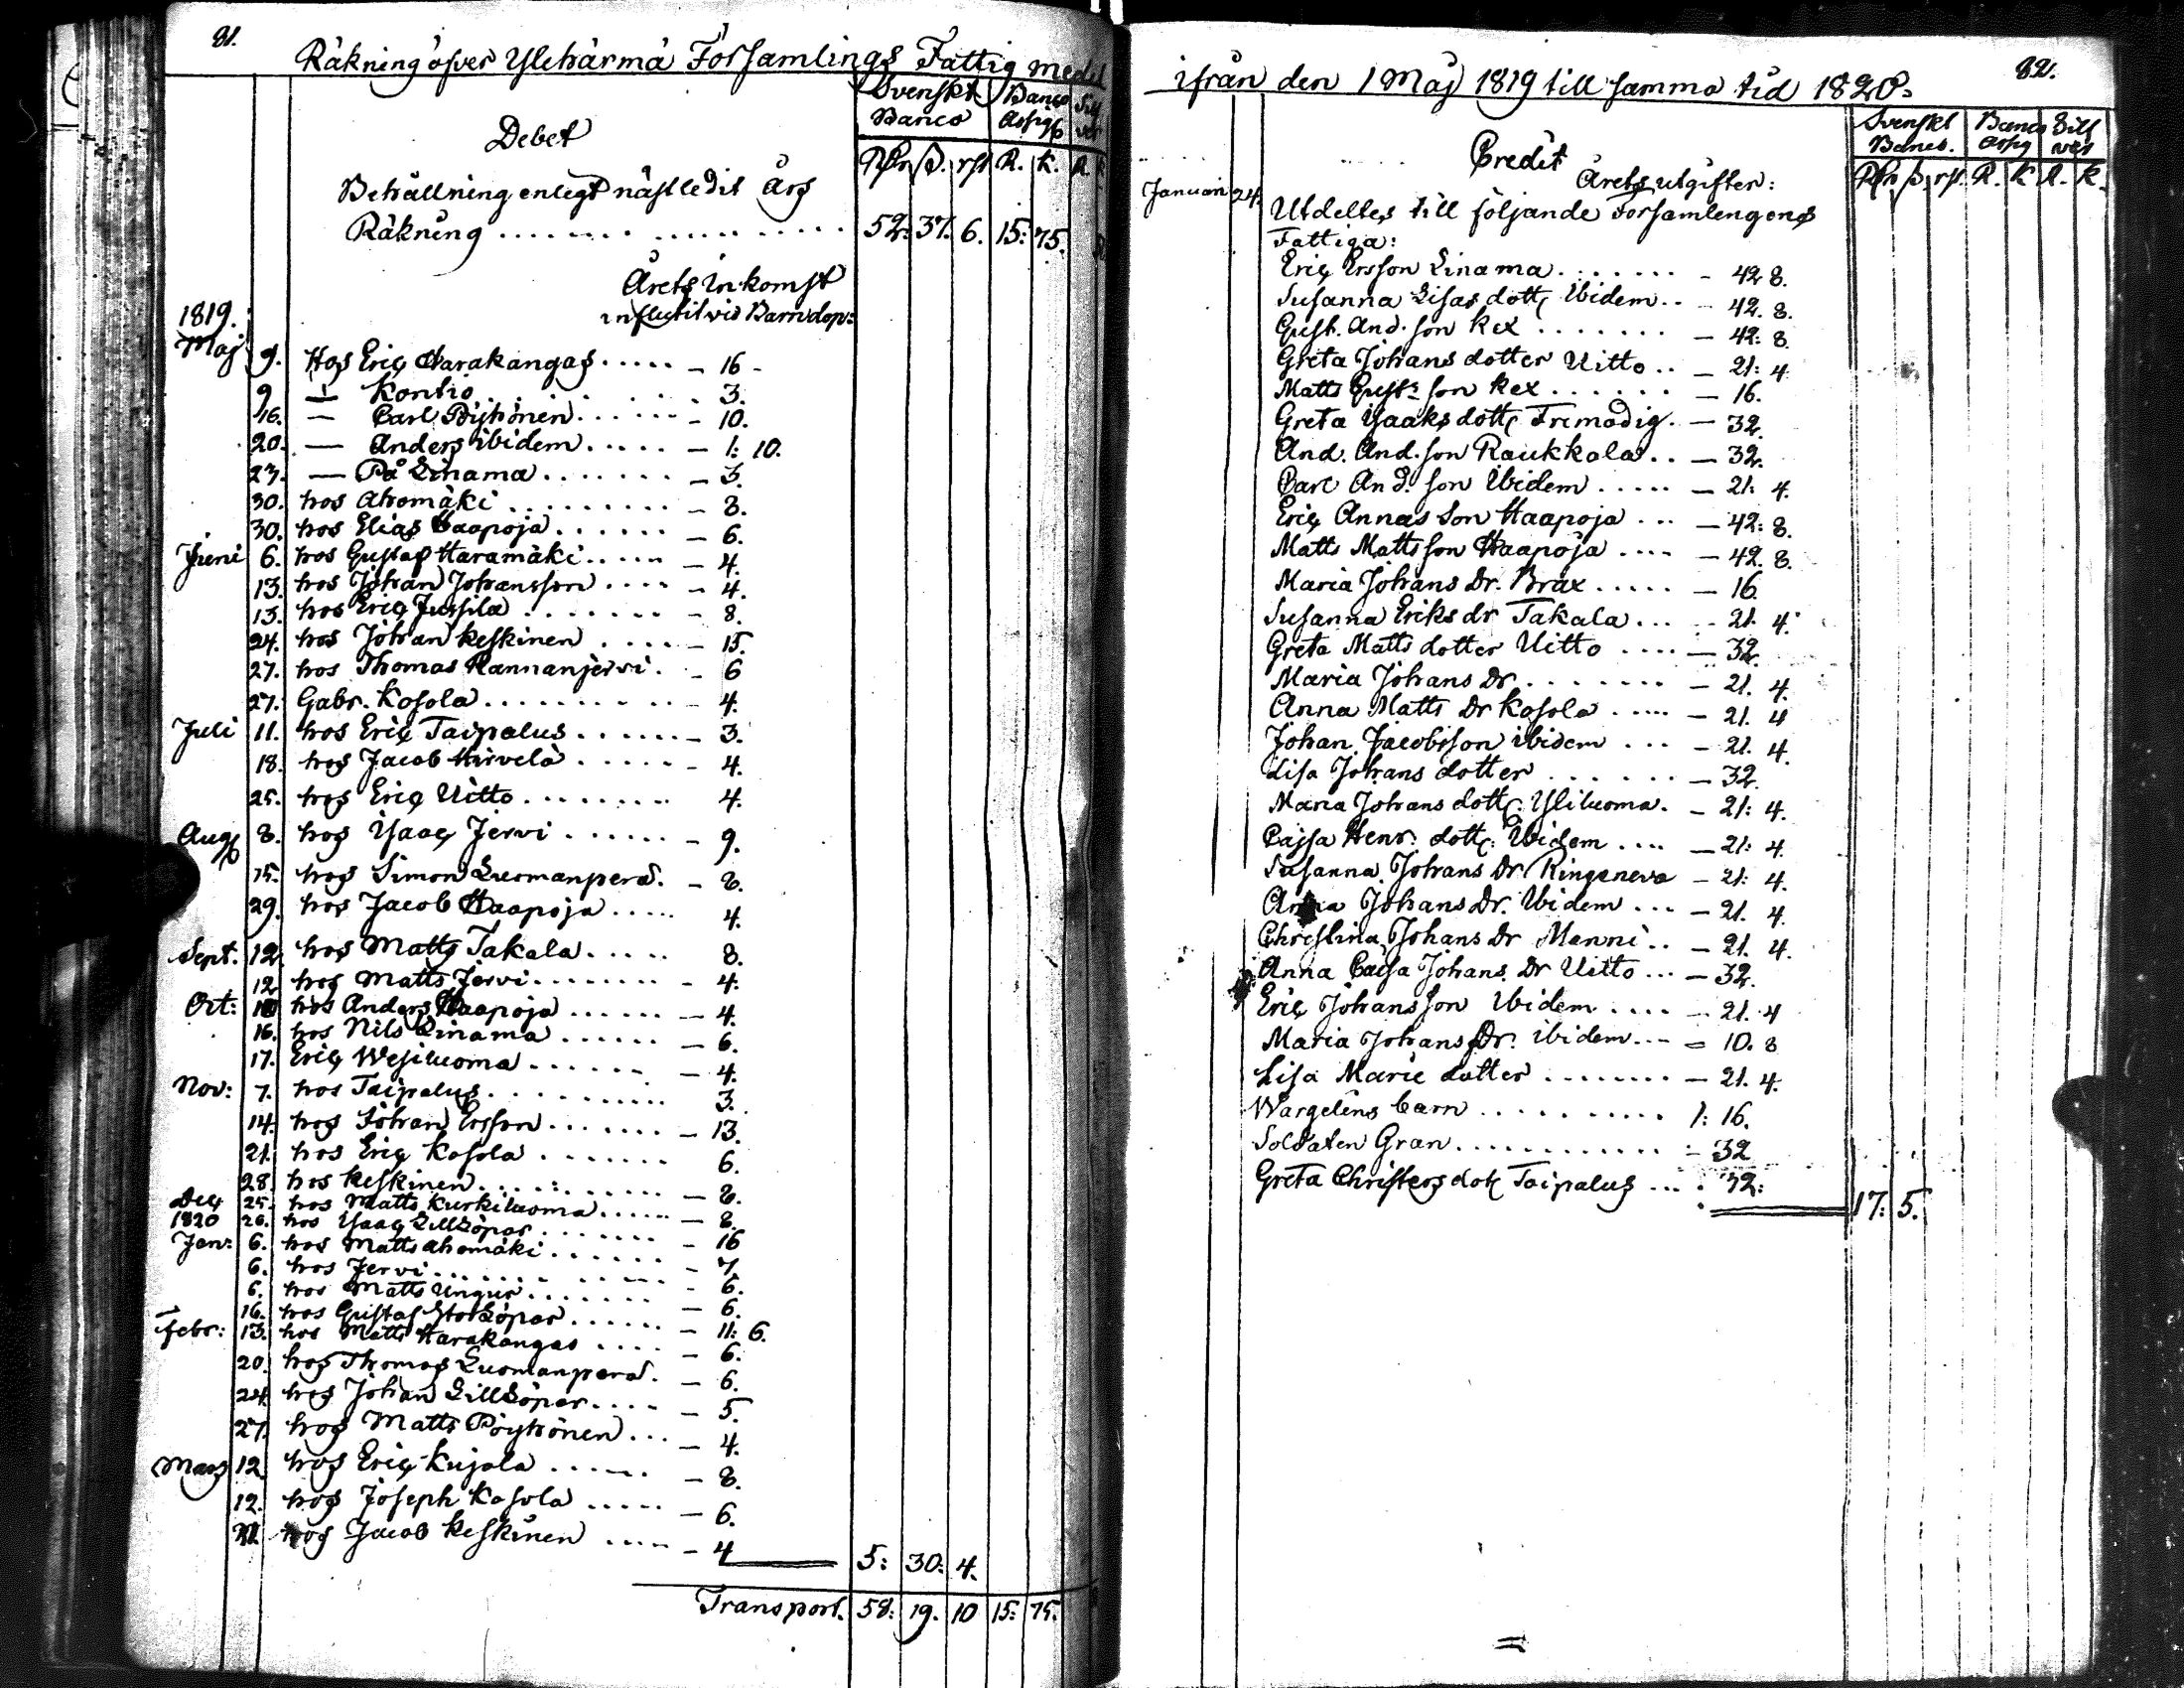 81.
Räkning öfver Ylihärmä Församlings Fattig medel
Svenskt Banco
Banco Assigs
Silf ver
Debet
R̃dr ß. rst R. k. R. k
Behållning enligt näst ledit års
Räkning ........ ...... ..... 52: 37. 6. 15: 75.
Årets Inkomst
influtit vid Barndop:
1819.
Maj 9. Hos Eric Harakangas ..... – 16 –
9 — Kontio . . . . . . . 3.
16. — Carl Pöyhönen ...... – 10.
20. — Anders ibidem ..... – 1: 10.
23. — På Linama ....... – 3.
30. hos Ahomäki ......... – 8.
30. hos Elias Haapoja ...... – 6.
Juni 6. hos Gustaf Haramäki ..... – 4.
13. hos Johan Johansson .... – 4.
13. hos Eric Jussila ....... – 8.
24. hos Johan Keskinen .... – 15.
27. hos Thomas Rannanjervi . – 6
27. Gabr. Kosola ......... – 4.
Juli 11. hos Eric Taipalus ...... – 3.
18. hos Jacob Hirvelä ..... – 4.
25. hos Eric Uitto ........ 4.
Aug 8. hos Isaac Jervi ...... – 9.
15. hos Simon Luomanperä. – 8.
29. hos Jacob Haapoja ..... 4.
Sept. 12. hos Matts Takala ..... 8.
12 hos Matts Jervi ........ – 4:
Oct: 10 hos Anders Haapoja ...... – 4.
16. hos Nils Linama ...... – 6.
17. Eric Wesiluoma ...... – 4.
Nov: 7. hos Taipalus .......... 3.
14. hos Johan Ersson ....... – 13.
21. hos Eric Kosola ....... 6.
28. hos Keskinen .......... – 8.
Dec 25. hos Matts Kurkiluoma ...... – 8.
1820 26. hos Isaac Lillköpar ....... – 16
Jan: 6. hos Matts Ahomäki ...... – 7.
6. hos Jervi ........ ..... – 6.
6. hos Matts Ungur ....... – 6.
16. hos Gustaf Storköpar ...... – 11: 6.
Febr: 13. hos Matts Harakangas .... – 6.
20. hos Thomas Luomanperä. – 6.
24. hos Johan Lillköpar .... – 5.
27. hos Matts Pöyhönen ... – 4.
Mars 12 hos Eric Kujala ...... – 8.
12. hos Joseph Kosola ..... – 6.
hos Jacob Keskinen .... – 4
5: 30: 4.
Transport. 58: 19. 10 15: 75.
82.
ifrån den 1 Maj 1819 till samma tid 1820.
Svenskt Banco.
Banco Assig
Silf ver
Credit
R̃dr ß. rst. R. K R. K.
Årets utgifter:
Januari 24. Utdeltes till följande Församlingens
Fattiga:
Eric Ersson Linama ........ – 42 8.
Susanna Lisas dott. Ibidem .. – 42. 8.
Gust. And. son Rex ....... – 42: 8.
Greta Johans dotter Uitto .. – 21: 4.
Matts Gust: son Rex ...... – 16.
Greta Isaaks dott Frimodig. – 32.
And. And. son Raukkala .. – 32.
Carl And. son Ibidem ..... – 21. 4.
Eric Annas Son Haapoja ... – 42: 8.
Matts Mattsson Haapoja .... – 42. 8.
Maria Johans Dr. Brax ..... – 16.
Susanna Eriks dr Takala ... – 21. 4.
Greta Matts dotter Uitto .... – 32.
Maria Johans Dr ........ – 21. 4.
Anna Matts Dr Kosola ..... – 21. 4
Johan Jacobsson ibidem ... – 21. 4.
Lisa Johans dotter ...... – 32.
Maria Johans dott. Yliluoma. – 21: 4.
Cajsa Henr. dott. Ibidem .... – 21: 4.
Susanna Johans Dr Ringeneva – 21: 4.
Anna Johans Dr. Ibidem ... – 21. 4.
Christina Johans Dr Manni .. – 21. 4.
Anna Cajsa Johans Dr Uitto ... – 32.
Eric Johansson Ibidem .... – 21. 4
Maria Johans Dr. ibidem ... – 10. 8
Lisa Marie dotter ........ – 21. 4.
Wargelins barn .......... 1: 16.
Soldaten Gran ............ – 32
Greta Christers dot Taipalus ... . 32:
17: 5.